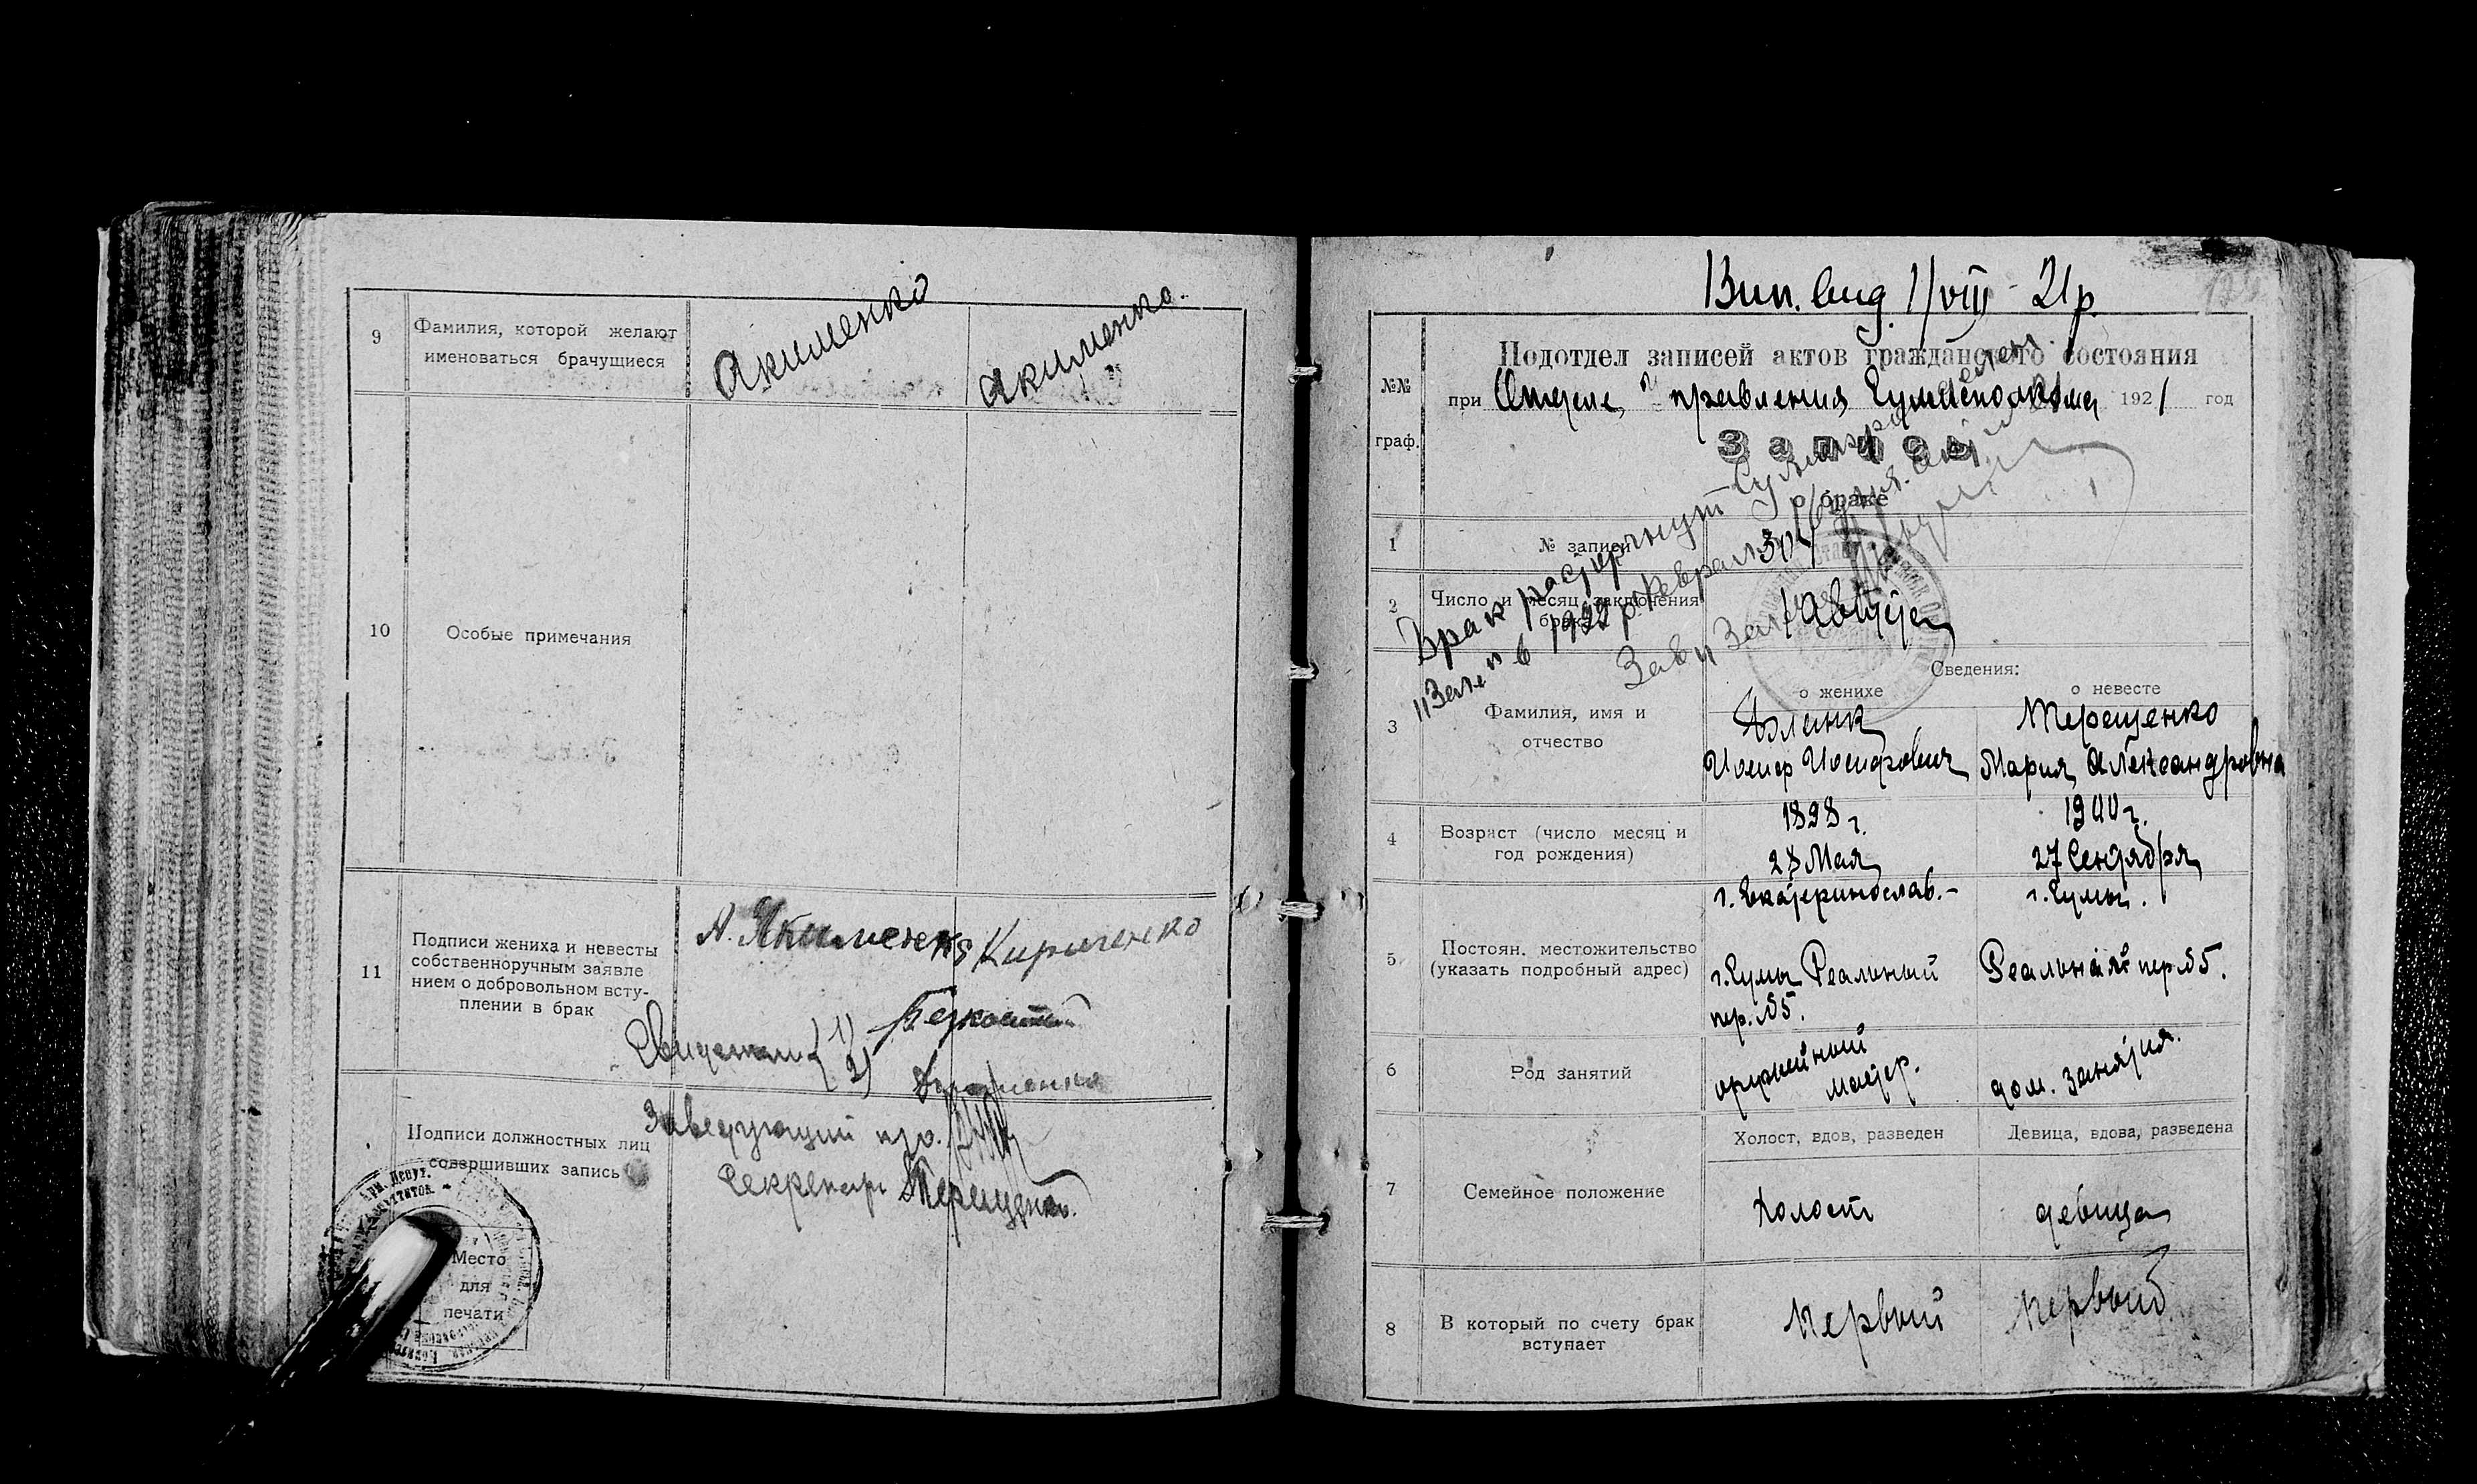 9
Фамилия, которой желают
именоваться брачущиеся
Акименко
Акименко.
10
Особые примечания
11
Подписи жениха и невесты
собственноручным заявле
нием о добровольном всту-
плении в брак
А. Якименко
Кириченко
Свидетели { 1)
2)
Подписи должностных лиц
совершивших запись
Заведующий
Секретарь Терещенко.
Место
для
печати
Вип. вид. 1/VIII - 21 р.
Подотдел записей актов гражданского состояния
№№
граф.
при Отделе Управления Сумисполкома 1921 год
Запись
о браке
Брак расторгнут
в 1922 р. февраля
Зав. Загс
1
№ записи
304
2
Число и месяц заключения
брака
1 Августа
Сведения:
о женихе
о невесте
3
Фамилия, имя и
отчество
Бланк
Иосиф Иосифович
Терещенко
Мария Александровна
4
Возраст (число месяц и
год рождения)
1898 г.
28 Мая
1900 г.
27 Сентября
г. Екатеринослав. -
г. Сумы.
5
Постоян. местожительство
(указать подробный адрес)
г. Сумы Реальный
пер. №5.
Реальный пер. №5.
6
Род занятий
оружейный
мастер.
дом. занятия.
Холост, вдов, разведен
Девица, вдова, разведена
7
Семейное положение
холост
девица
8
В который по счету брак
вступает
Первый
Первый